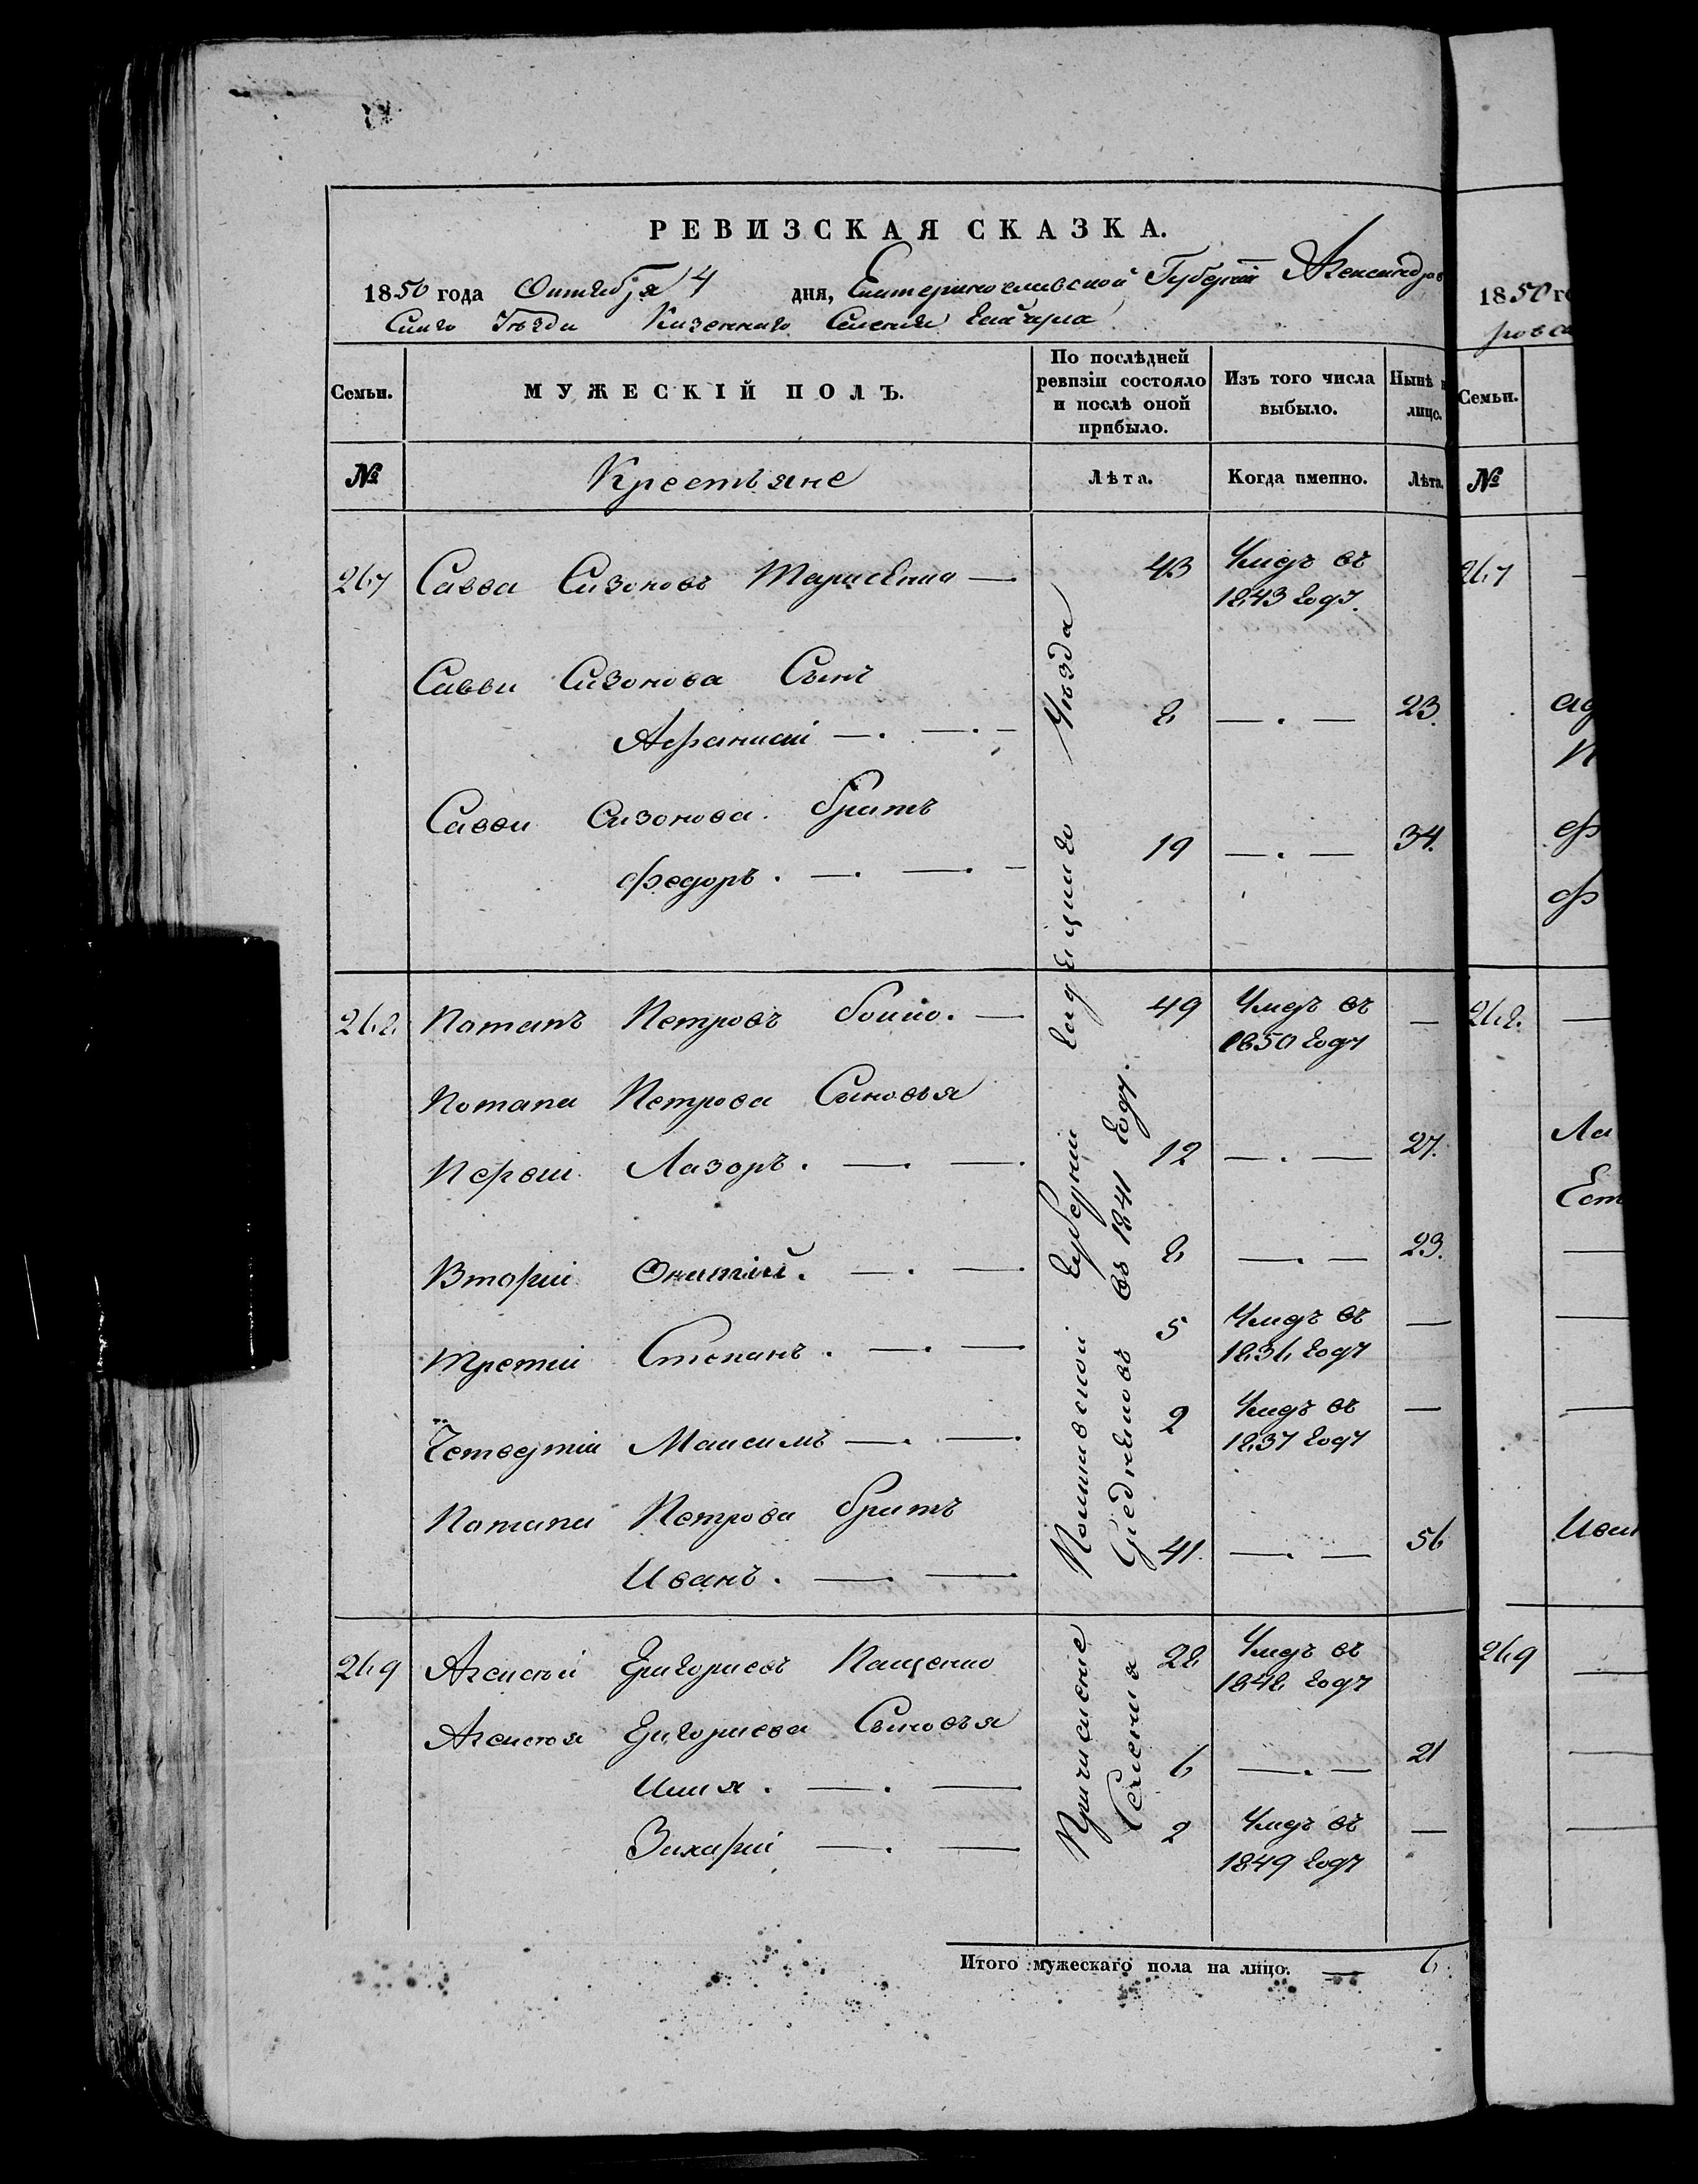 РЕВИЗСКАЯ СКАЗКА.
1850 года Октября 4 дня, Екатеринославской Губерніи Александров
скаго Уѣзда Казеннаго Селенія Гайчула
Семьи.
МУЖЕСКІЙ ПОЛЪ.
По послѣдней
ревизіи состояло
и послѣ оной
прибыло.
Изъ того числа
выбыло.
Нынѣ н
лицо.
№
Крестьяне
Лѣта.
Когда именно.
Лѣта.
267 Савва Сизоновъ Тарасенко — 43 Умеръ въ
1843 году.
Саввы Сизонова Сынъ
Афанасій —. —. — 8 —.— 23.
Саввы Сизонова братъ
Федоръ. —. —. — 19 —.— 34.
268 Потапъ Петровъ бойко. — 49 Умеръ въ —
1850 году
Потапа Петрова Сыновья
Первый Лазоръ. —. —. 12 —.— 27.
Вторый Онытій. —. — 8 —.— 23.
Третій Степанъ. —. — 5 Умеръ въ —
1836 году
Четвертій Максимъ —. —. 2 Умеръ въ —
1837 году
Потапа Петрова братъ
Иванъ. —. — 41. —.— 56
269 Алексѣй Григорьевъ Пащенко 28 Умеръ въ
1848 году
Алексѣя Григорьева Сыновья
Илья. —. — 6 —.— 21
Захарій —. — 2 Умеръ въ —
1849 году
Причисленіе Полтавской Губерніи Гадячскаго Уѣзда
Селенія въ 1841 году.
Итого мужескаго пола на лицо. — 6.
1850 го
ровск
Семьи.
№
267
268.
Ла
269